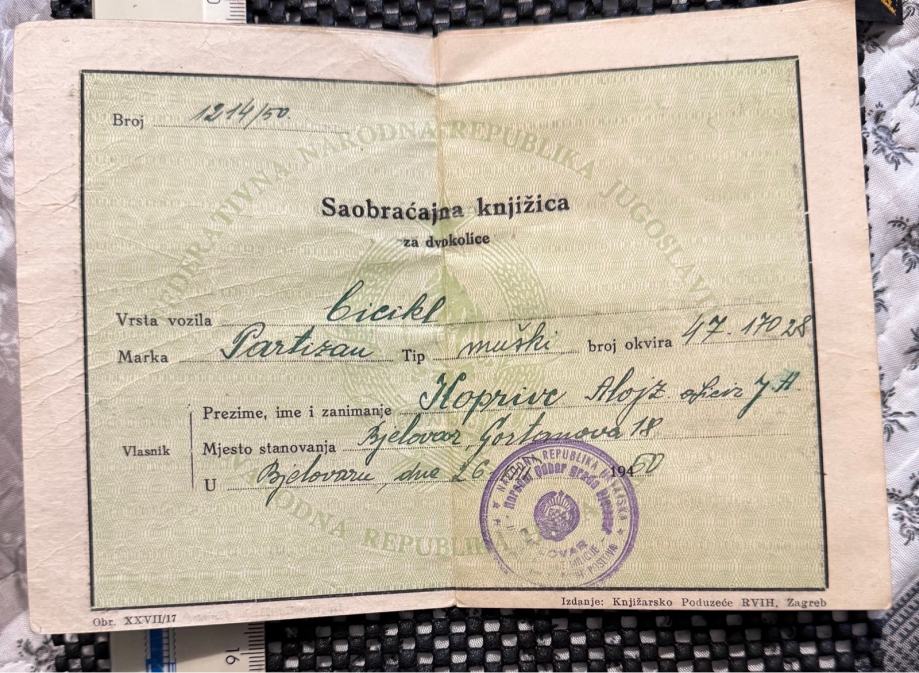 Broj 1214/50
FEDERATIVNA NARODNA REPUBLIKA JUGOSLAVIJA
Saobraćajna knjižica
za dvokolice
Vrsta vozila bicikl
Marka Partizan Tip muški broj okvira 47.17028
Prezime, ime i zanimanje Koprivc Alojz oficir JA
Vlasnik
Mjesto stanovanja Bjelovar Gortanova 18
U Bjelovaru, dne 26 1950
NARODNA REPUBLIKA HRVATSKA
Narodni odbor grada Bjelovar
BJELOVAR
NARODNA REPUBLIKA
Obr. XXVII/17
Izdanje: Knjižarsko Poduzeće RVIH, Zagreb
16